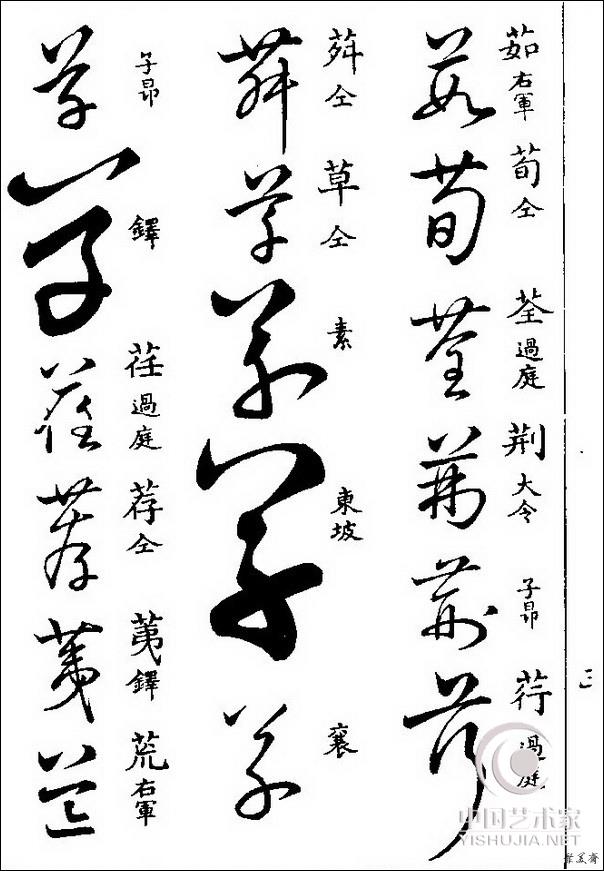 茹 右軍
荀 仝
荃 過庭
荆 大令
子昂
荇 過庭
荈 仝
草 仝
素
東坡
襄
子昂
鐸
荏 過庭
荐 仝
荑 鐸
荒 右軍
三
中国艺术家
YISHUJIA.NET